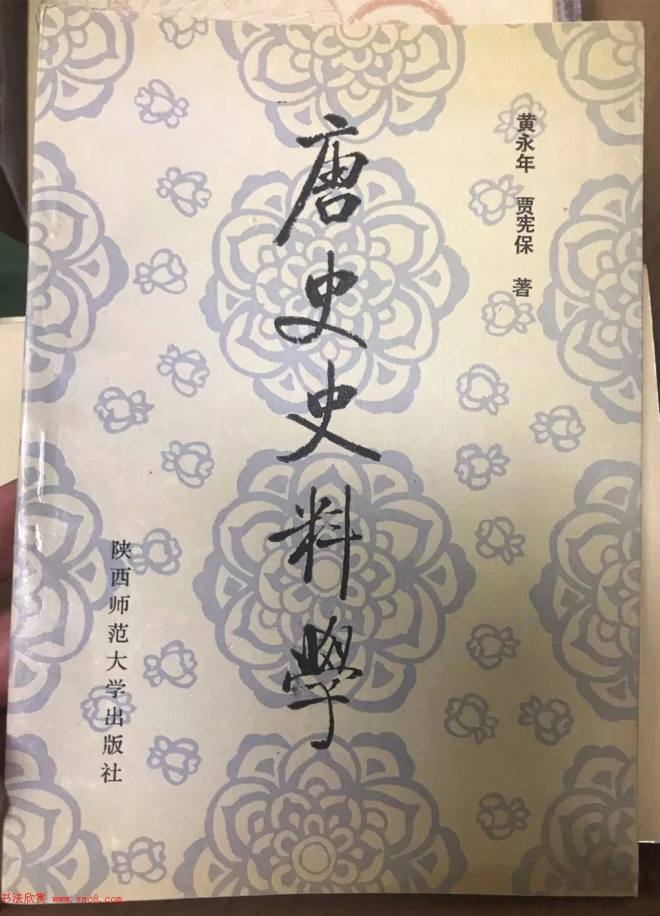 黄永年 贾宪保 著
唐史史料學
陕西师范大学出版社
书法欣赏 www.yac8.com